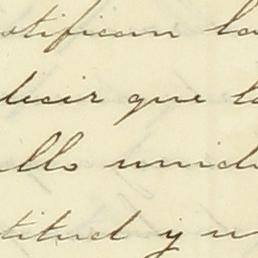 tifican la
decir que l
llo unid
titud y u